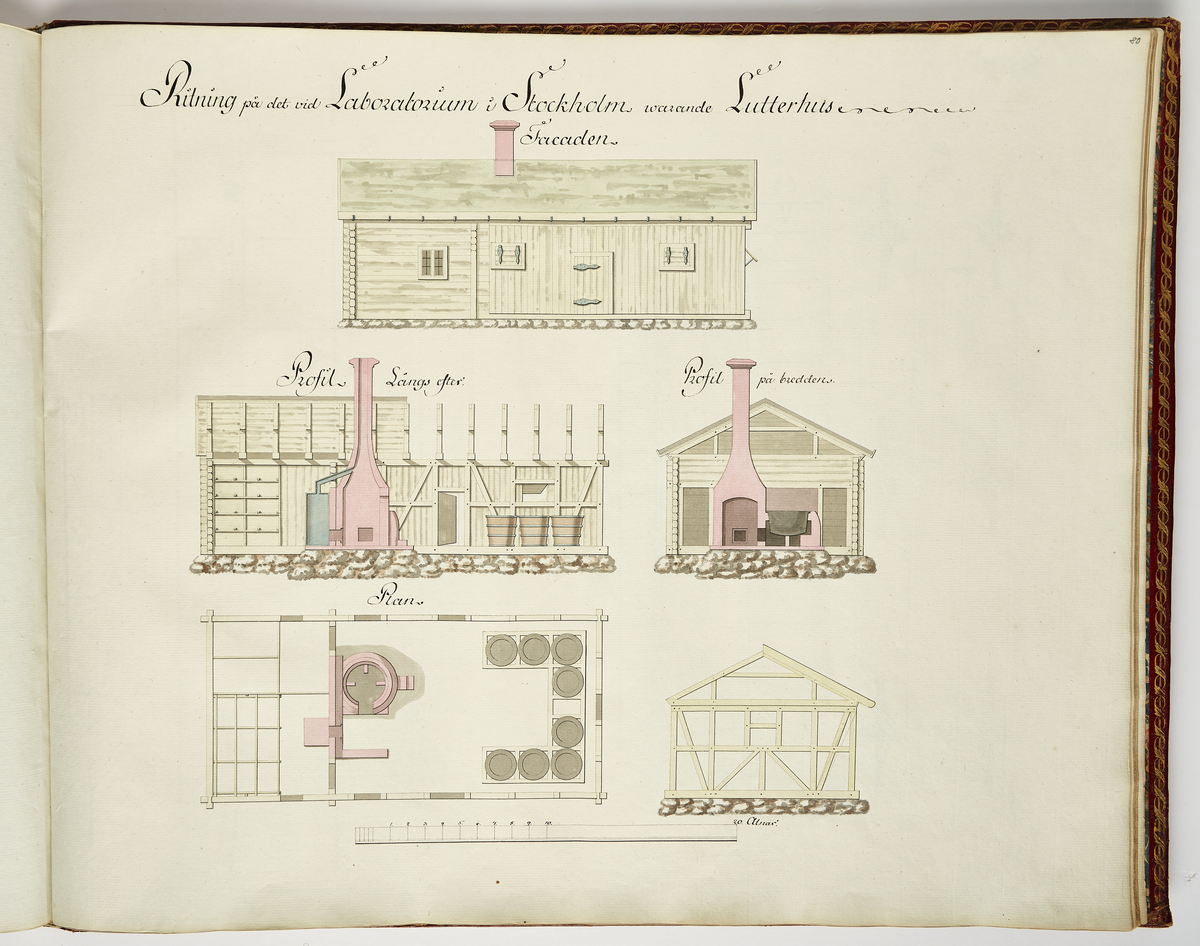 80
Ritning på det vid Laboratorium i Stockholm warande Lutterhus
Facaden
Profil Långs efter.
Profil på bredden.
Plan
1 2 3 4 5 6 7 8 9 10 20 Alnar.